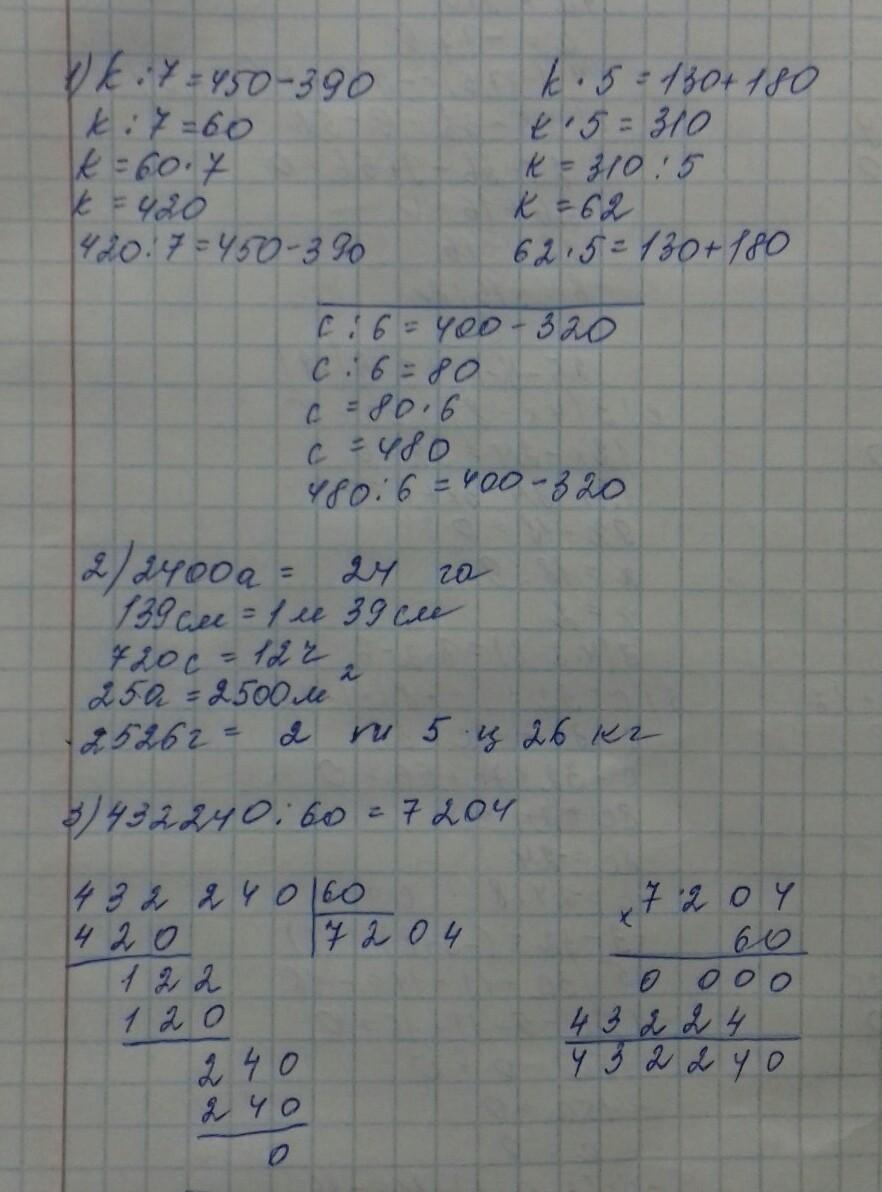 1) k : 7 = 450 - 390
k : 7 = 60
k = 60 · 7
k = 420
420 : 7 = 450 - 390
k · 5 = 130 + 180
k · 5 = 310
k = 310 : 5
k = 62
62 · 5 = 130 + 180
c : 6 = 400 - 320
c : 6 = 80
c = 80 · 6
c = 480
480 : 6 = 400 - 320
2) 2400а = 24 га
139см = 1 м 39 см
720с = 12ч
25а = 2500м²
2526г = 2 т 5 ц 26 кг
3) 432240 : 60 = 7204
432 240 | 60
420 | 7204
122
120
240
240
0
× 7204
60
0 000
43224
432240